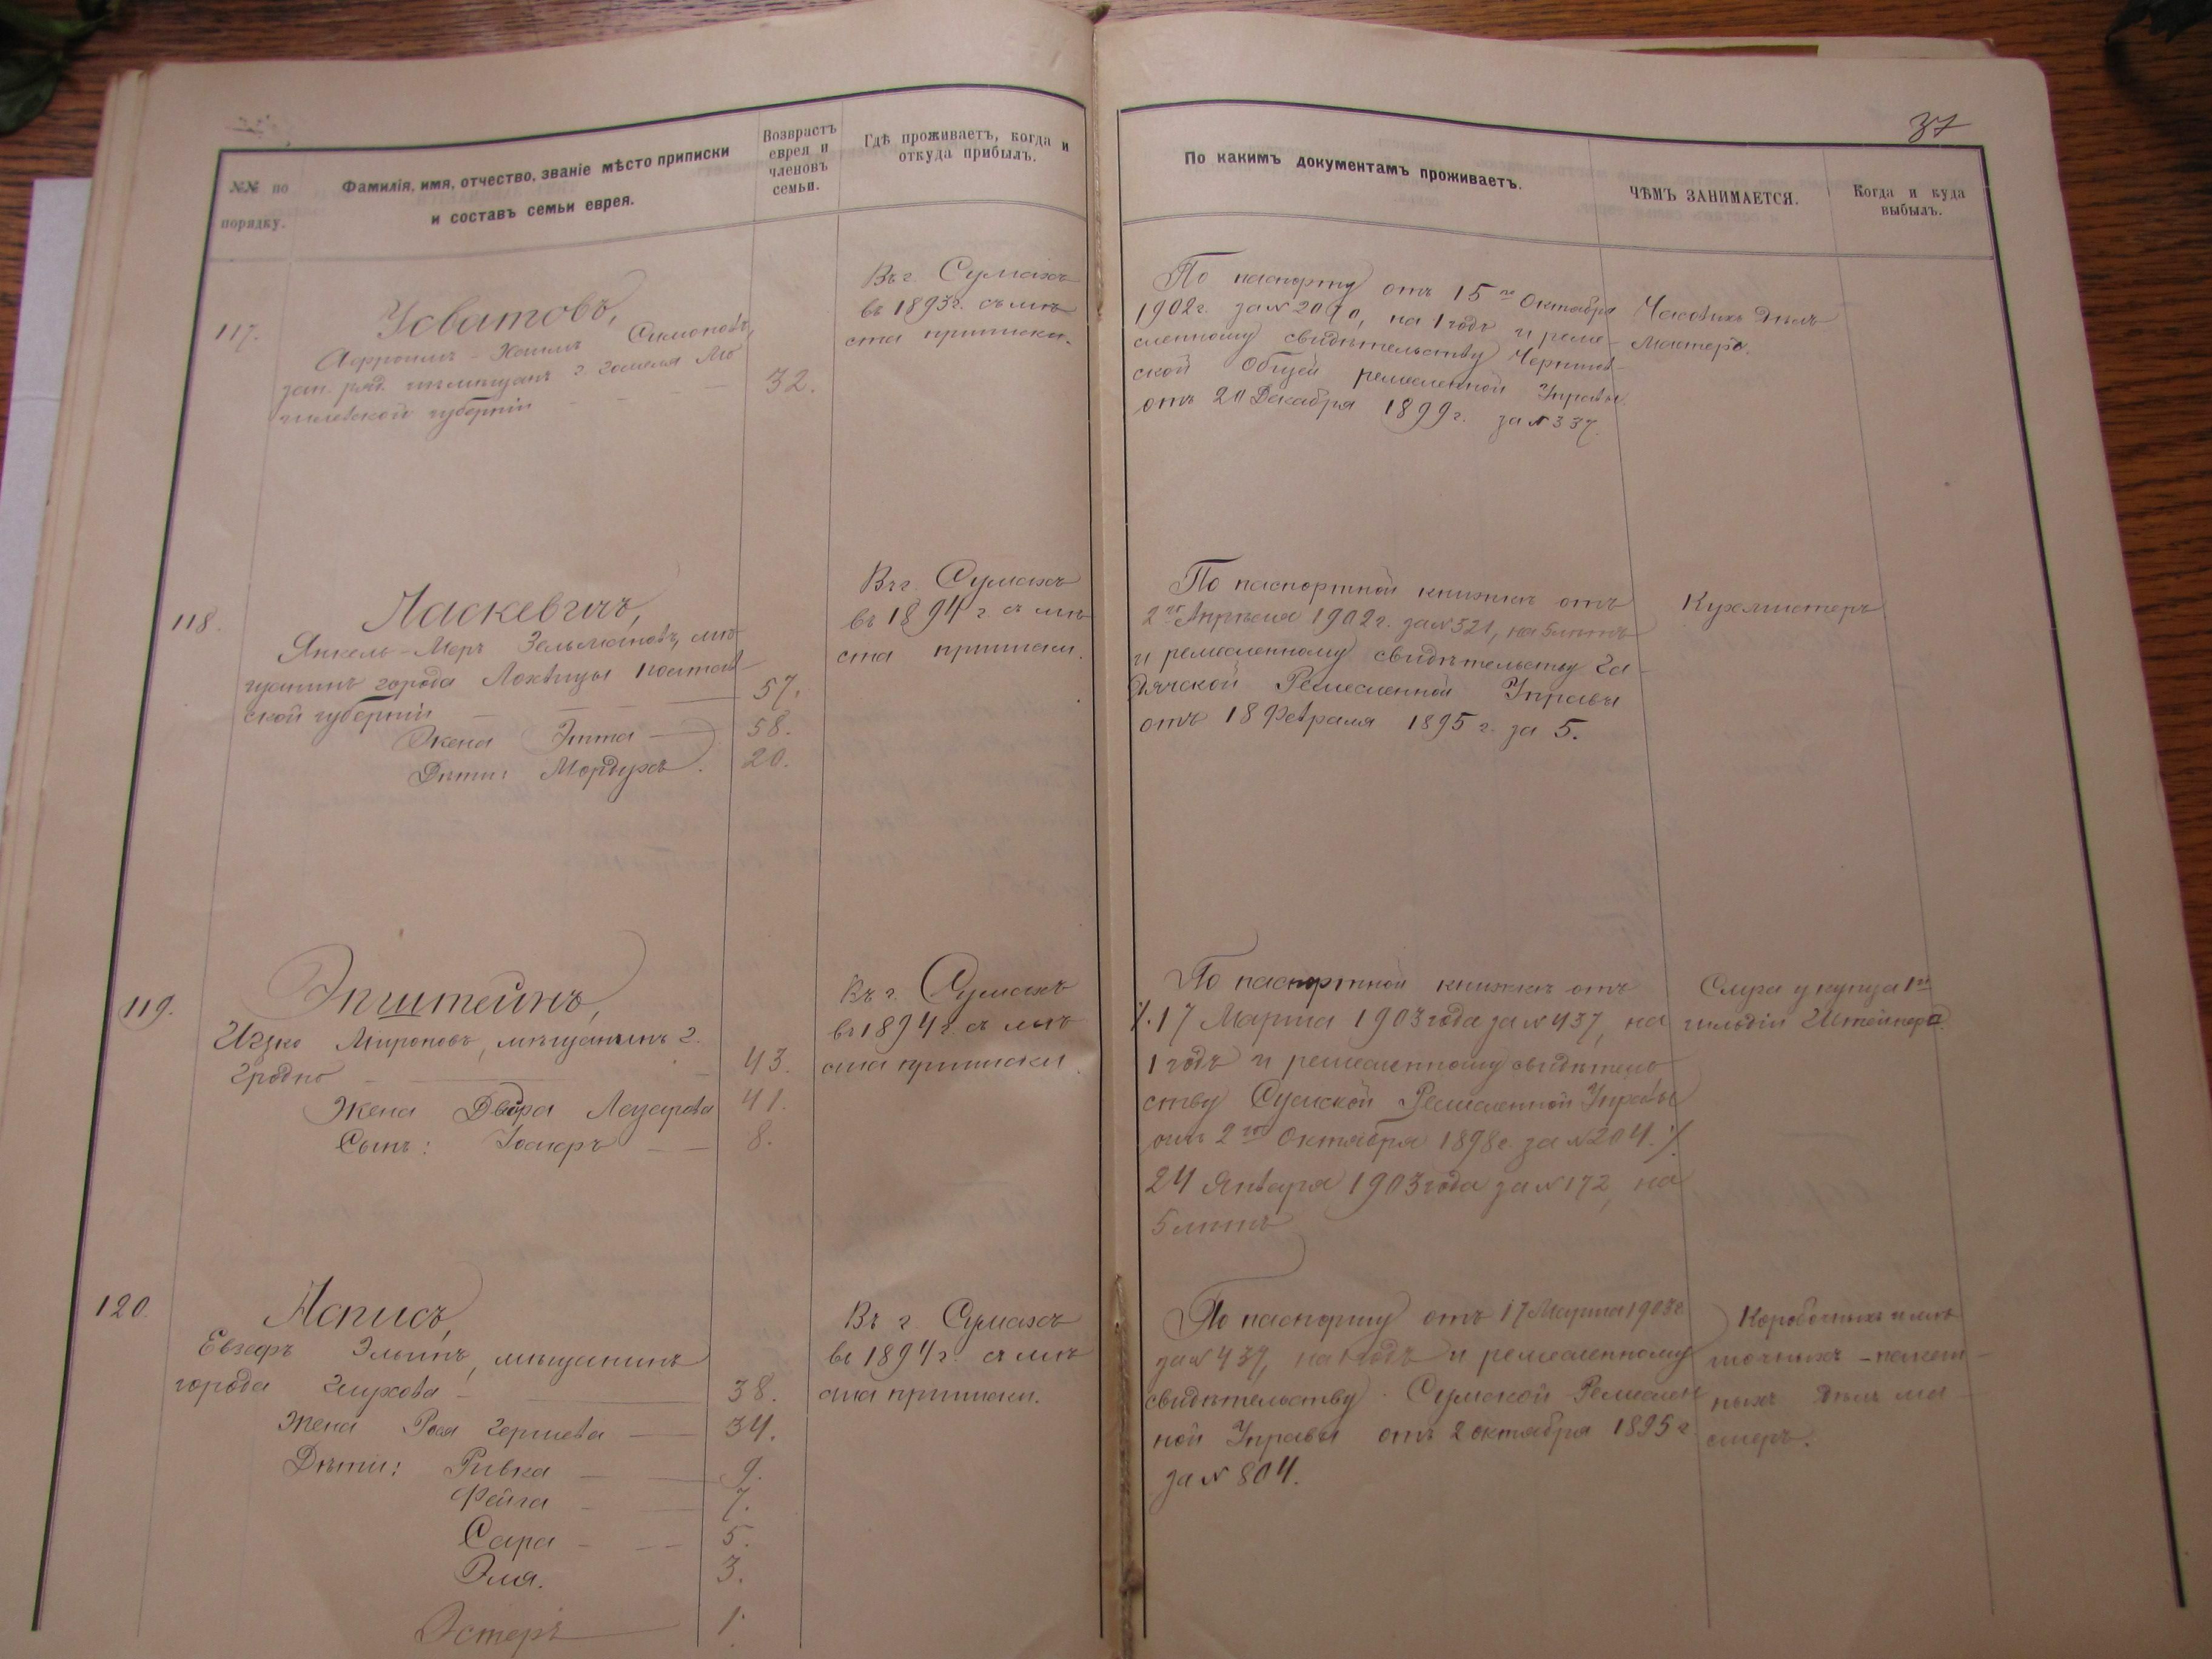 37
№№ по порядку.
Фамилія, имя, отчество, званіе мѣсто приписки
и составъ семьи еврея.
Возврастъ
еврея и
членовъ
семьи.
Гдѣ проживаетъ, когда и
откуда прибылъ.
По какимъ документамъ проживаетъ.
ЧѢМЪ ЗАНИМАЕТСЯ.
Когда и куда
выбылъ.
117.
Усватовъ,
Симоновъ,
зап. ряд. изъ мѣщанъ г. Гомеля Мо
гилевской губерніи
32.
Въ г. Сумахъ
въ 1893 г. съ мѣ
ста приписки.
По паспорту отъ 15го Октября
1902 г. за № 2090, на 1 годъ и реме-
сленному свидѣтельству Чернигов-
ской Общей ремесленной Управы
отъ 20 Декабря 1899 г. за № 337.
Часовыхъ дѣлъ
мастеръ.
118.
Ласкевичъ,
Янкель-Меръ Зельмановъ, мѣ
щанинъ города Лохвицы Полтав-
ской губерніи 57.
Жена Этта 58.
Дѣти: Мордухъ. 20.
Въ г. Сумахъ
въ 1894 г. съ мѣ
ста приписки.
По паспортной книжкѣ отъ
2го Апрѣля 1902 г. за № 521, на 5 лѣтъ
и ремесленному свидѣтельству Га-
дячской Ремесленной Управы
отъ 18 Февраля 1895 г. за 5.
Кухмистеръ
119.
Эпштейнъ,
Ицко Мироновъ, мѣщанинъ г.
Гродно 43.
Жена Двора Лазарева 41.
Сынъ: 8.
Въ г. Сумахъ
въ 1894 г. съ мѣ
ста приписки.
По паспортной книжкѣ отъ
٪ 17 Марта 1903 года за № 437, на
1 годъ и ремесленному свидѣтель
ству Сумской Ремесленной Управы
отъ 2го Октября 1898 г. за № 204. ٪
24 Января 1903 года за № 172, на
5 лѣтъ
Слуга у купца 1й
гильдіи Штейнера.
120.
Аписъ,
Эльинъ, мѣщанинъ
города Глухова 38.
Жена Роза Гершева 34.
Дѣти: Ривка 9.
Фейга 7.
Сара 5.
Эля. 3.
Эстеръ 1.
Въ г. Сумахъ
въ 1894 г. съ мѣ
ста приписки.
По паспорту отъ 17 Марта 1903 г.
за № 437, на 1 годъ и ремесленному
свидѣтельству Сумской Ремеслен
ной Управы отъ 2 октября 1895 г.
за № 804.
Коробочныхъ
ныхъ дѣлъ ма-
стеръ.